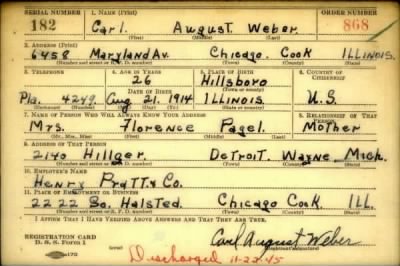 SERIAL NUMBER 1. NAME (Print) ORDER NUMBER
182 Carl August Weber 868
(First) (Middle) (Last)
2. ADDRESS (Print)
6458 Maryland Av. Chicago. Cook ILLINOIS.
3. TELEPHONE 4. AGE IN YEARS 5. PLACE OF BIRTH 6. COUNTRY OF CITIZENSHIP
26 Hillsboro
DATE OF BIRTH (Town or county)
Pla. 4249. Aug 21. 1914 ILLINOIS. U.S.
(Exchange) (Number) (Mo.) (Day) (Yr.) (State or country)
7. NAME OF PERSON WHO WILL ALWAYS KNOW YOUR ADDRESS 8. RELATIONSHIP OF THAT PERSON
Mrs. Florence Pagel. Mother
(Mr., Mrs., Miss) (First) (Middle) (Last)
9. ADDRESS OF THAT PERSON
2140 Hillger Detroit. Wayne. Mich.
10. EMPLOYER'S NAME
Henry Pratt & Co.
11. PLACE OF EMPLOYMENT OR BUSINESS
2222 So. Halsted. Chicago Cook. ILL.
I AFFIRM THAT I HAVE VERIFIED ABOVE ANSWERS AND THAT THEY ARE TRUE.
REGISTRATION CARD
D. S. S. Form 1
Carl August Weber
(Registrant's signature)
Discharged 11-22-45